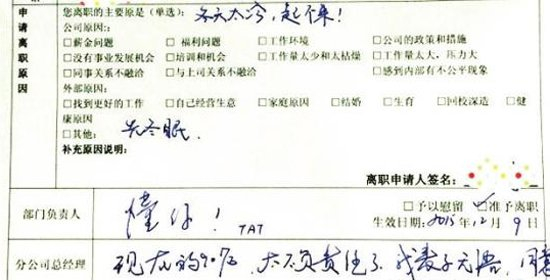 申请离职原因
您离职的主要原是（单选）：冬天太冷，起不来！
公司原因：
□薪金问题 □福利问题 □工作环境 □公司的政策和措施
□没有事业发展机会 □培训和机会 □工作量太少和太枯燥 □工作量太大，压力大
□同事关系不融洽 □与上司关系不融洽 □感到内部有不公平现象
外部原因：
□找到更好的工作 □自己经营生意 □家庭原因 □结婚 □生育 □回校深造 □健
康原因
□其他：去冬眠.
补充原因说明：
离职申请人签名：
部门负责人
懂你！TAT
□予以慰留 ☑准予离职
生效日期：2015.12月9日
分公司总经理
现在的90後，太不负责任了，我表示无语，同意